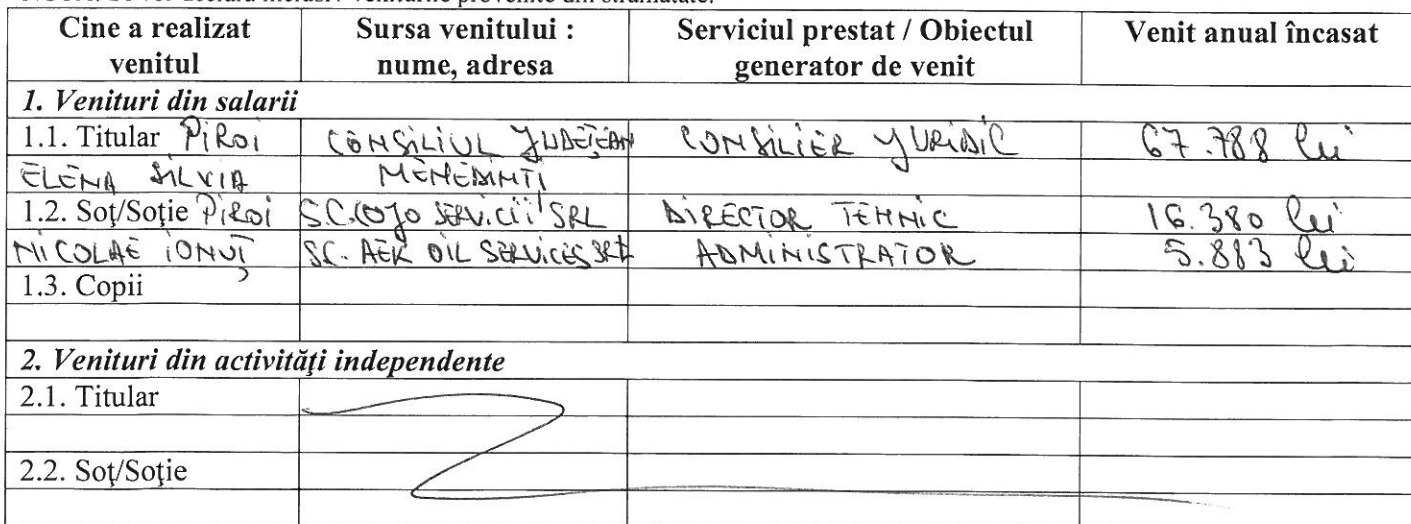 Cine a realizat venitul | Sursa venitului : nume, adresa | Serviciul prestat / Obiectul generator de venit | Venit anual încasat
1. Venituri din salarii
1.1. Titular PIROI | CONSILIUL JUDEȚEAN | CONSILIER JURIDIC | 67.788 lei
ELENA SILVIA | MEHEDINȚI
1.2. Soţ/Soţie PIROI | S.C. COJO SERVICII SRL | DIRECTOR TEHNIC | 16.380 lei
NICOLAE IONUȚ | SC. AEK OIL SERVICES SRL | ADMINISTRATOR | 5.883 lei
1.3. Copii
2. Venituri din activităţi independente
2.1. Titular
2.2. Soţ/Soţie